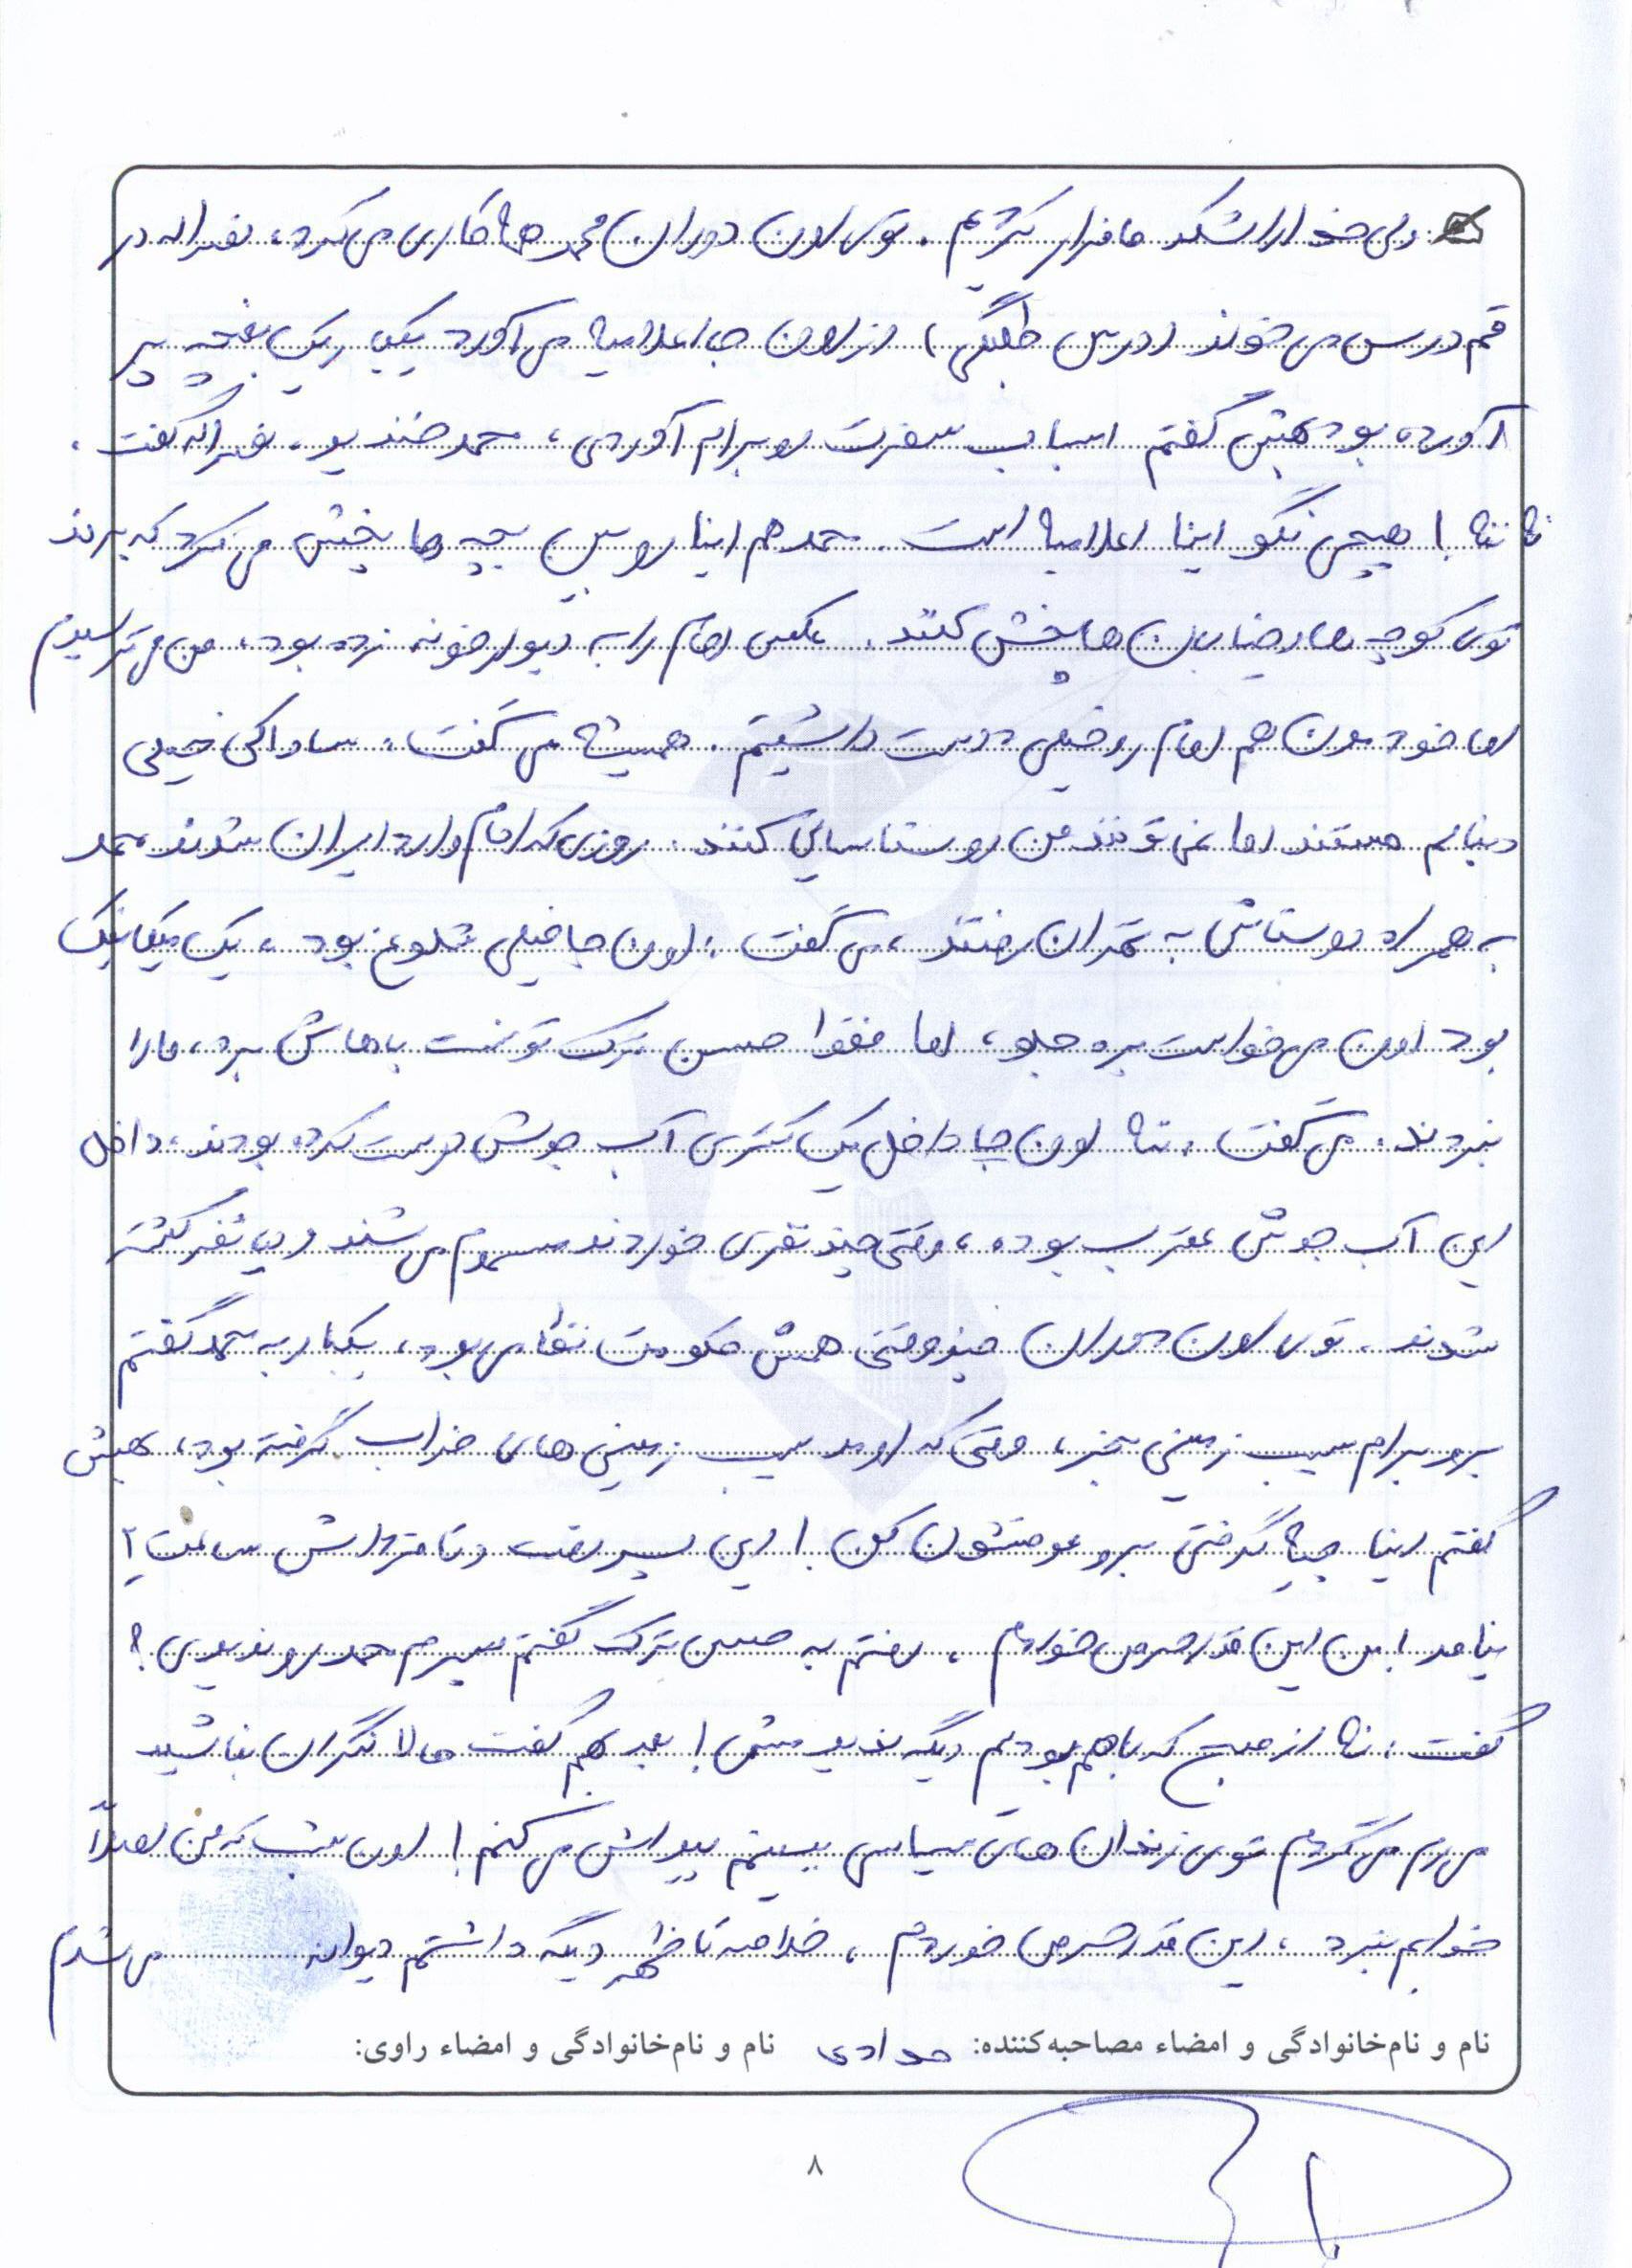 ولی خدا را شکر ما فرار کردیم. توی اون دوران محمد هم کاری می‌کرد، نصراله در
قم درس می‌خوند (درس طلبگی) از اون جا اعلامیه می‌آورد یکبار یک بقچه پر
آورده بود بهش گفتم اسباب سفرت رو برام آوردی، محمد خندید. نصراله گفت:
نه ننه! هیچی نگو اینا اعلامیه است. محمد هم اینا رو بین بچه ها پخش می‌کرد که ببرند
توی کوچه ها و خیابان ها پخش کنند. عکس امام را به دیوار خونه زده بود، من می‌ترسیدم
اما خودمون هم امام رو خیلی دوست داشتیم. همیشه می‌گفت: ساواکی خیلی
دنبالم هستند اما نمی‌توانند من رو شناسایی کنند. روزی که امام وارد ایران شدند محمد
به همراه دوستاش به تهران رفتند، می‌گفت: اون جا خیلی شلوغ بود، یک مکانیک
بود اون می‌خواست بره جلو، اما فقط حسین ترک تونست باهاش بره، ما را
نبردند. می‌گفت: ننه اون جا داخل یک کتری آب جوش درست کرده بودند، داخل
این آب جوش عقرب بوده، وقتی چند نفری خوردند مسموم می‌شند و یک نفر کشته
شدند. توی اون دوران چند وقتی همش حکومت نظامی بود، یکبار به محمد گفتم
برو برام سیب زمینی بخر، وقتی که اومد سیب زمینی های خراب گرفته بود، بهش
گفتم اینا چیه گرفتی برو عوضشون کن! این پسر رفت و تا فرداش ساعت ۲
نیامد! من این قدر حرص خوردم، رفتم به حسین ترک گفتم پسرم محمد رو ندیدی؟
گفت: نه از صبح که باهم بودیم دیگه ندیدمش! بعد بهم گفت حالا نگران نباشید
می‌رم می‌گردم توی زندان های سیاسی ببینم پیداش می‌کنم! اون شب که من اصلاً
خوابم نبرد، این قدر حرص خوردم، خلاصه تا ظهر دیگه داشتم دیوانه می‌شدم
نام و نام‌خانوادگی و امضاء مصاحبه‌کننده: حدادی نام و نام‌خانوادگی و امضاء راوی:
۸